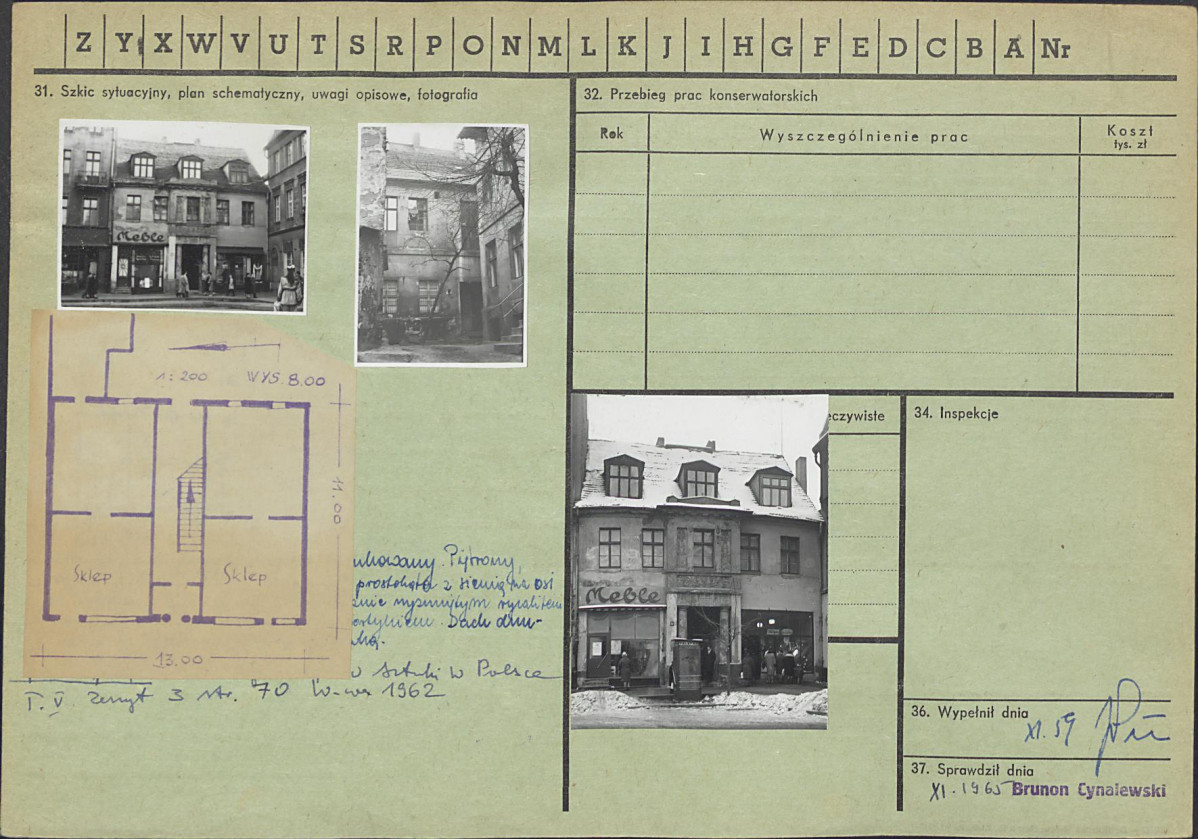 Z Y X W V U T S R P O N M L K J I H G F E D C B A Nr
31. Szkic sytuacyjny, plan schematyczny, uwagi opisowe, fotografia
Meble
1:200 WYS. 8.00
11.00
Sklep Sklep
13,00
Piętrowy,
z sienią na osi
Dach
Sztuki w Polsce
T. V. zeszyt 3 str. 70 W-wa 1962
32. Przebieg prac konserwatorskich
Rok Wyszczególnienie prac Koszt
tys. zł
eczywiste
Meble
34. Inspekcje
36. Wypełnił dnia
XI. 59
37. Sprawdził dnia
XI. 1965 Brunon Cynalewski